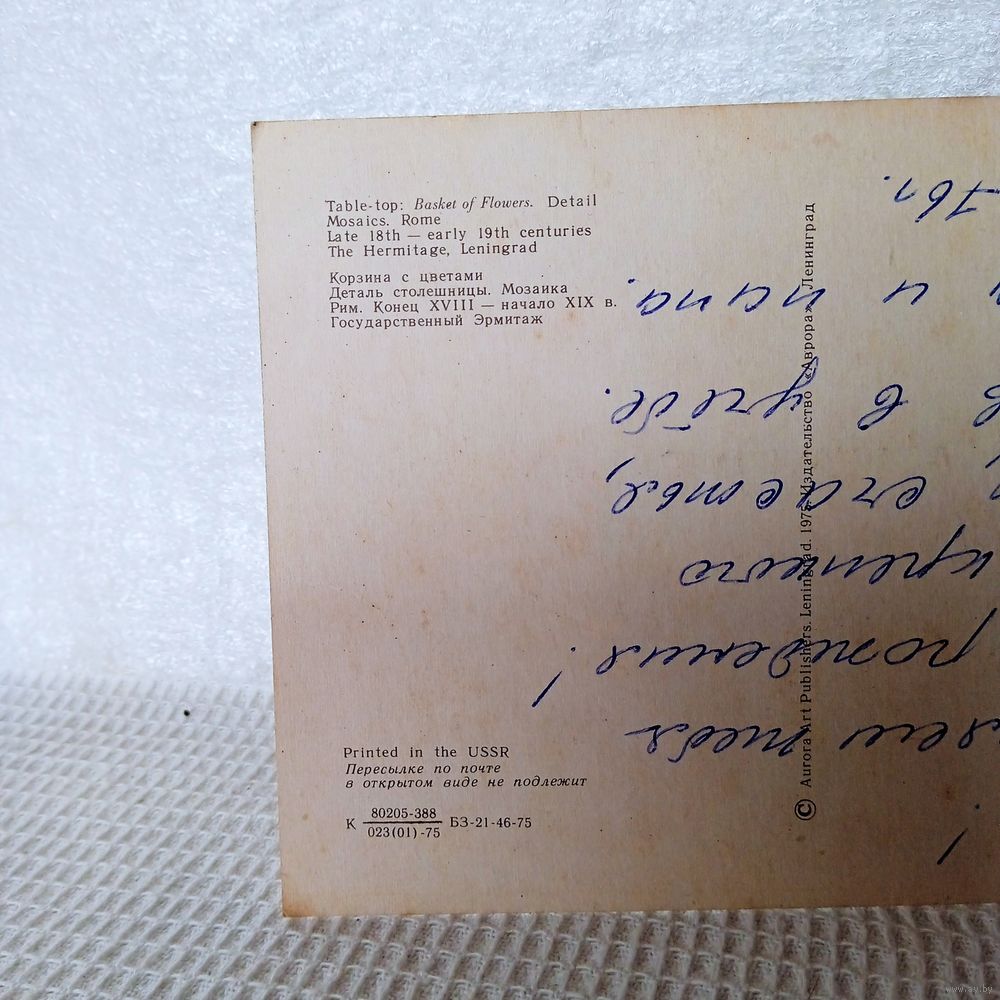 Table-top: Basket of Flowers. Detail
Mosaics. Rome
Late 18th — early 19th centuries
The Hermitage, Leningrad
Корзина с цветами
Деталь столешницы. Мозаика
Рим. Конец XVIII — начало XIX в.
Государственный Эрмитаж
Printed in the USSR
Пересылке по почте
в открытом виде не подлежит
К 80205-388
023(01)-75 БЗ-21-46-75
© Aurora Art Publishers. Leningrad. 1975. Издательство «Аврора» Ленинград
!
тебя
рождения!
крепкого
счастья,
в учебе.
и папа.
76г.
www.ay.by